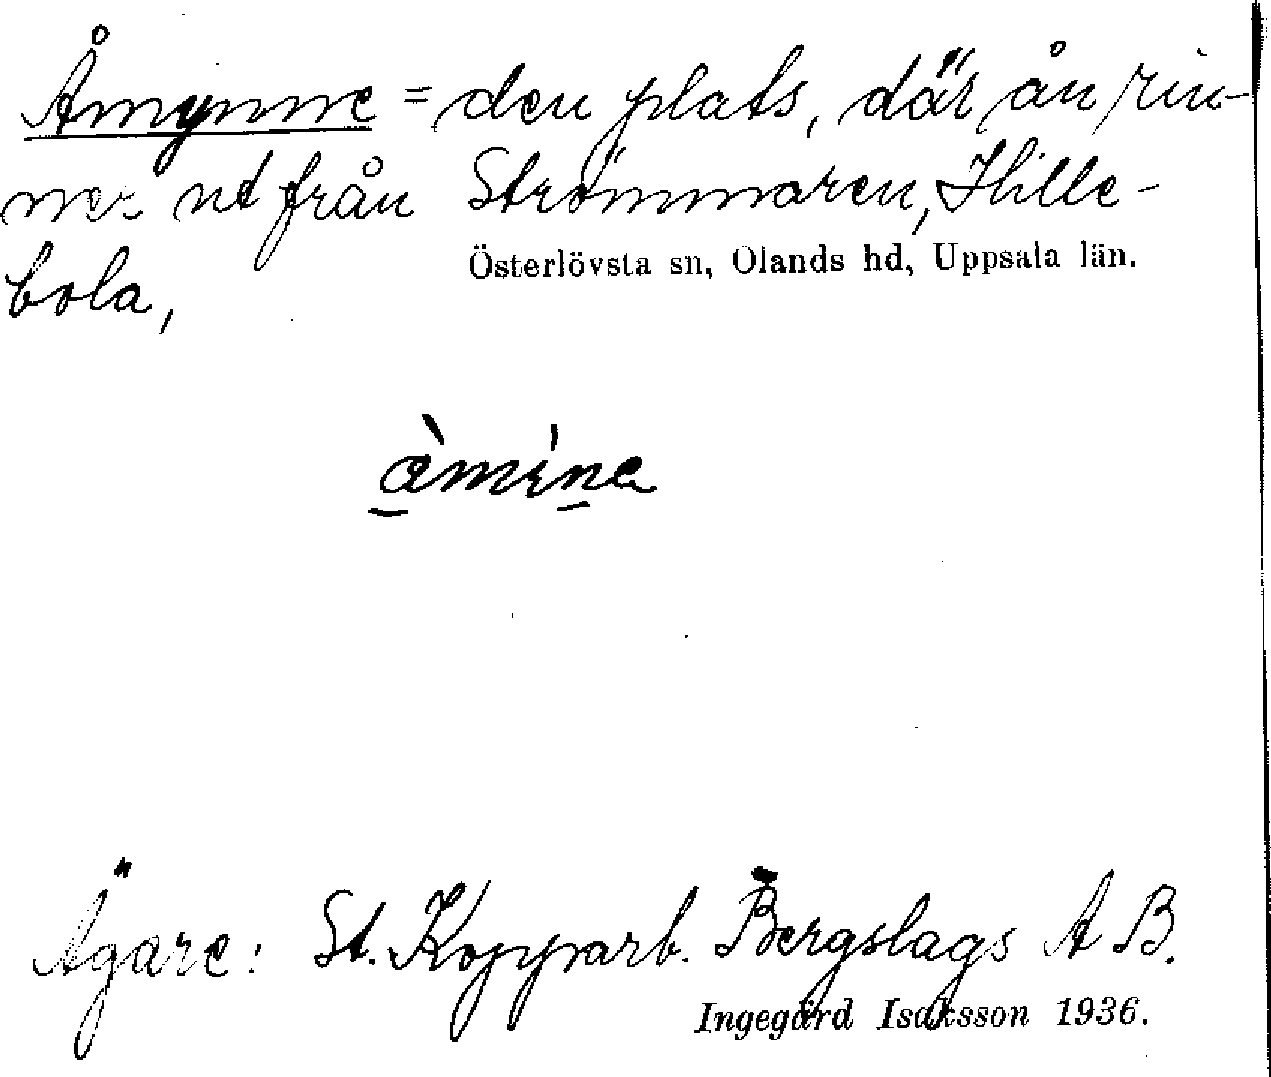 Åmynne = den plats, där ån rin-
ner ut från Strömmaren, Hille-
bola,
Österlövsta sn, Olands hd, Uppsala län.
Ägare: St. Kopparb. Bergslags A B.
Ingegärd Isaksson 1936.